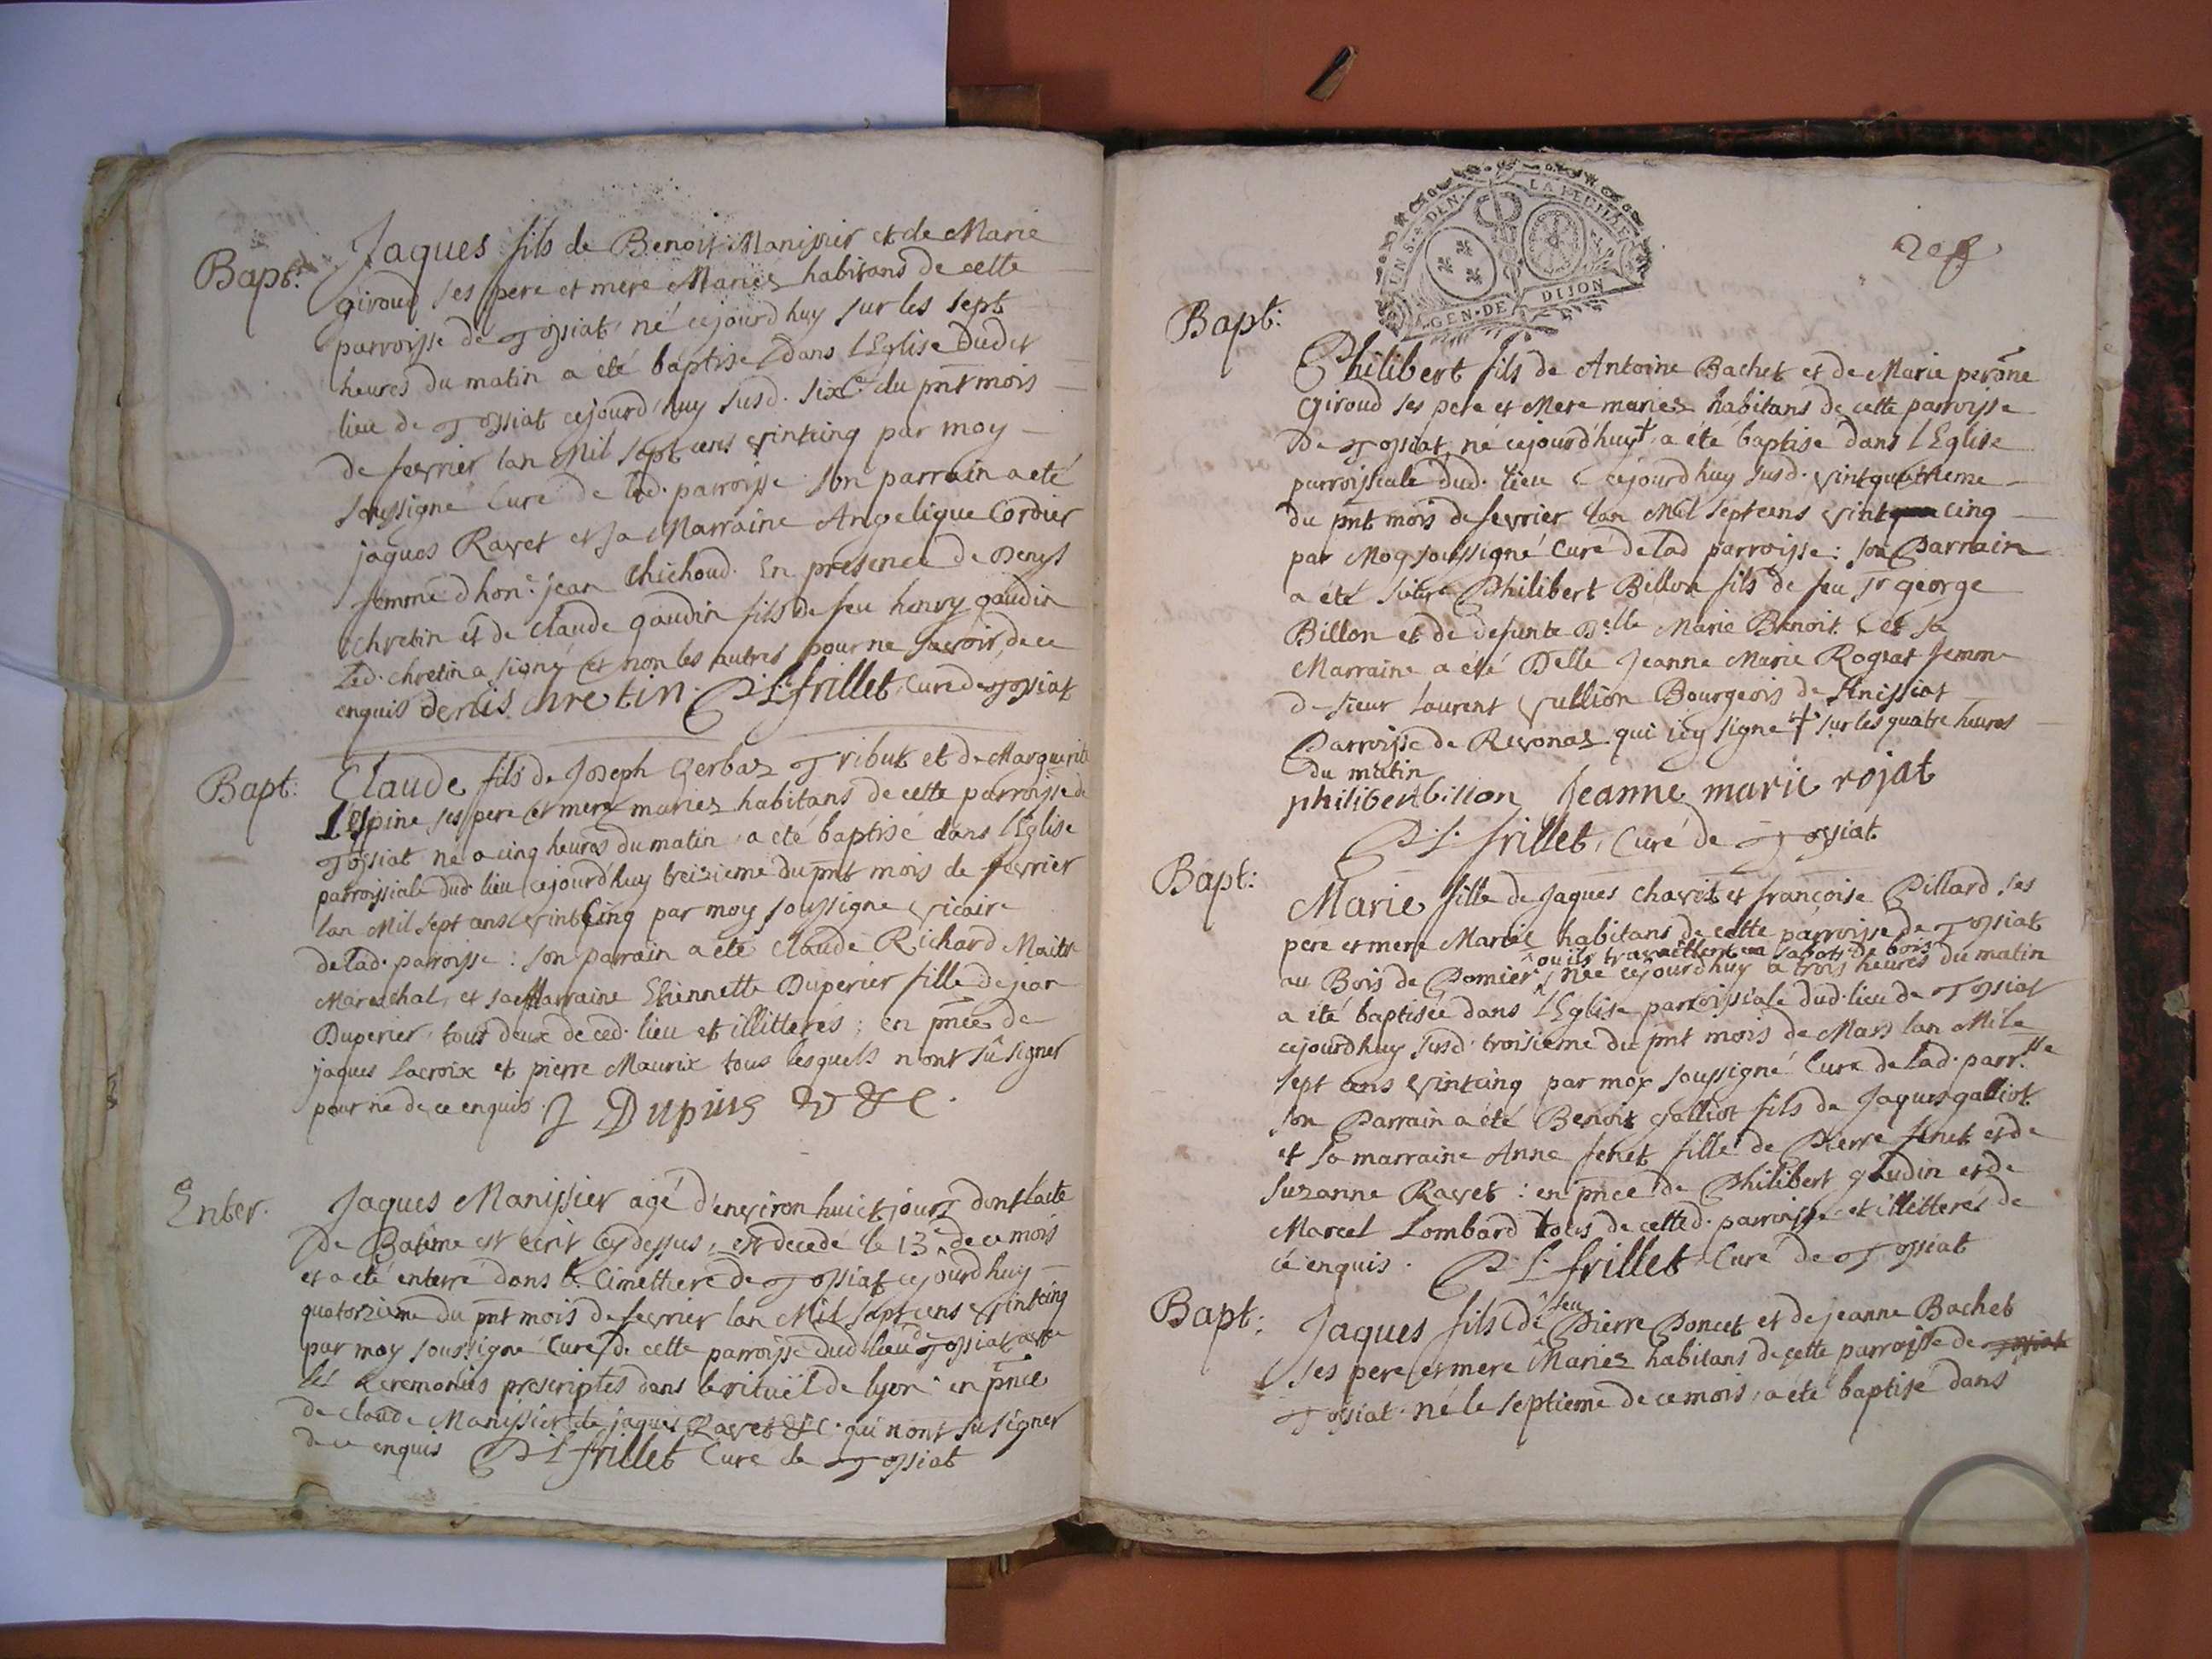 Bapt. Jaques fils de Benoit Manissier et de Marie
giroud ses pere et mere Mariez habitans de cette
parroisse de Tossiat né cejourd'huy sur les sept
heures du matin a été baptisé dans l'Eglise dudit
lieu de Tossiat cejourd'huy susd. sixe du pnt mois
de fevrier lan Mil sept cens vintcing par moy
soussigné Curé de lad. parroisse son parrain a eté
jaques Ravet et sa Marraine Angelique Cordier
femme d'hon.e jean Chichoud. En presence de Denys
chretin et de claude gaudin fils de feu henry gaudin
Led. chretin a signé et non les autres pour ne sçavoir, de ce
enquis denis chretin P.L. frillet, Curé de Tossiat
Bapt: Claude fils de Joseph Gerbaz Tribut et de Marguerite
l'Espine ses pere et mere mariez habitans de cette parroisse de
Tossiat né a cinq heures du matin a eté baptisé dans l'Eglise
parroissiale dud. lieu cejourd'huy treizieme du pnt mois de fevrier
lan Mil sept cens vintcing par moy soussigné vicaire
de lad. parroisse : son parrain a eté claude Richard Maitre
Mareschal, et sa Marraine Etiennette Duperier fille de jean
Duperier, tous deux de ced. lieu et illitterés ; en pnce de
jaques Lacroix et pierre Maurix tous lesquels n'ont sû signer
pour ne de ce enquis. J Dupius V &c.
Enter. Jaques Manissier agé d'environ huict jours dont l'acte
de Batême est écrit cy dessus, est decedé le 13e de ce mois
et a eté enterré dans le Cimettiere de Tossiat cejourd'huy
quatorzieme du pnt mois de fevrier lan Mil sept cens vintcing
par moy soussigné Curé de cette parroisse dud. lieu de Tossiat avec
les Ceremonies prescriptes dans le rituël de lyon en pnce
de claude Manissier de jaques Ravet &c. qui n'ont sû signer
de ce enquis P L frillet Curé de Tossiat
GEN. DE DIJON
Bapt:
Philibert fils de Antoine Bachet et de Marie perone
Giroud ses pere et Mere mariez habitans de cette parroisse
de Tossiat, né cejourd'huy+ a été baptisé dans l'Eglise
parroissiale dud. lieu cejourd'huy susd. vintquatrieme
du pnt mois de fevrier lan Mil sept cens vint cinq
par Moy soussigné Curé de lad parroisse : son Parrain
a été Philibert Billon fils de feu Sr george
Billon et de defunte Delle Marie Benoit et sa
Marraine a été Delle Jeanne Marie Rogeat femme
de sieur Laurent vullion Bourgeois de
Parroisse de Revonaz qui icy signé + sur les quatre heures
du matin
philibert billon Jeanne marie rojat
P. L. frillet, Curé de Tossiat
Bapt: Marie fille de Jaques Chavet et françoise Pillard, ses
pere et mere Mariez habitans de cette parroisse de Tossiat
au Bois de Pomier ^ou ils travaillent en sabots de bois^ née cejourd'huy a trois heures du matin
a été baptisée dans l'Eglise parroissiale dud. lieu de Tossiat
cejourd'huy susd. troisieme du pnt mois de Mars lan Mile
sept cens vintcing par moy soussigné Curé de lad. parr.sse
son Parrain a été Benoit galliot fils de Jaques galliot
et sa marraine Anne fenet fille de Pierre fenet et de
Suzanne Ravet : en pnce de Philibert gaudin et de
Marcel Lombard tous de cetted. parroisse et illitterés de
ce enquis. P. L. frillet Curé de Tossiat
Bapt: Jaques fils de ^feu^ Pierre Poncet et de jeanne Bachet
ses pere et mere Mariez habitans de cette parroisse de Tossiat
Tossiat né le septieme de ce mois, a été baptisé dans